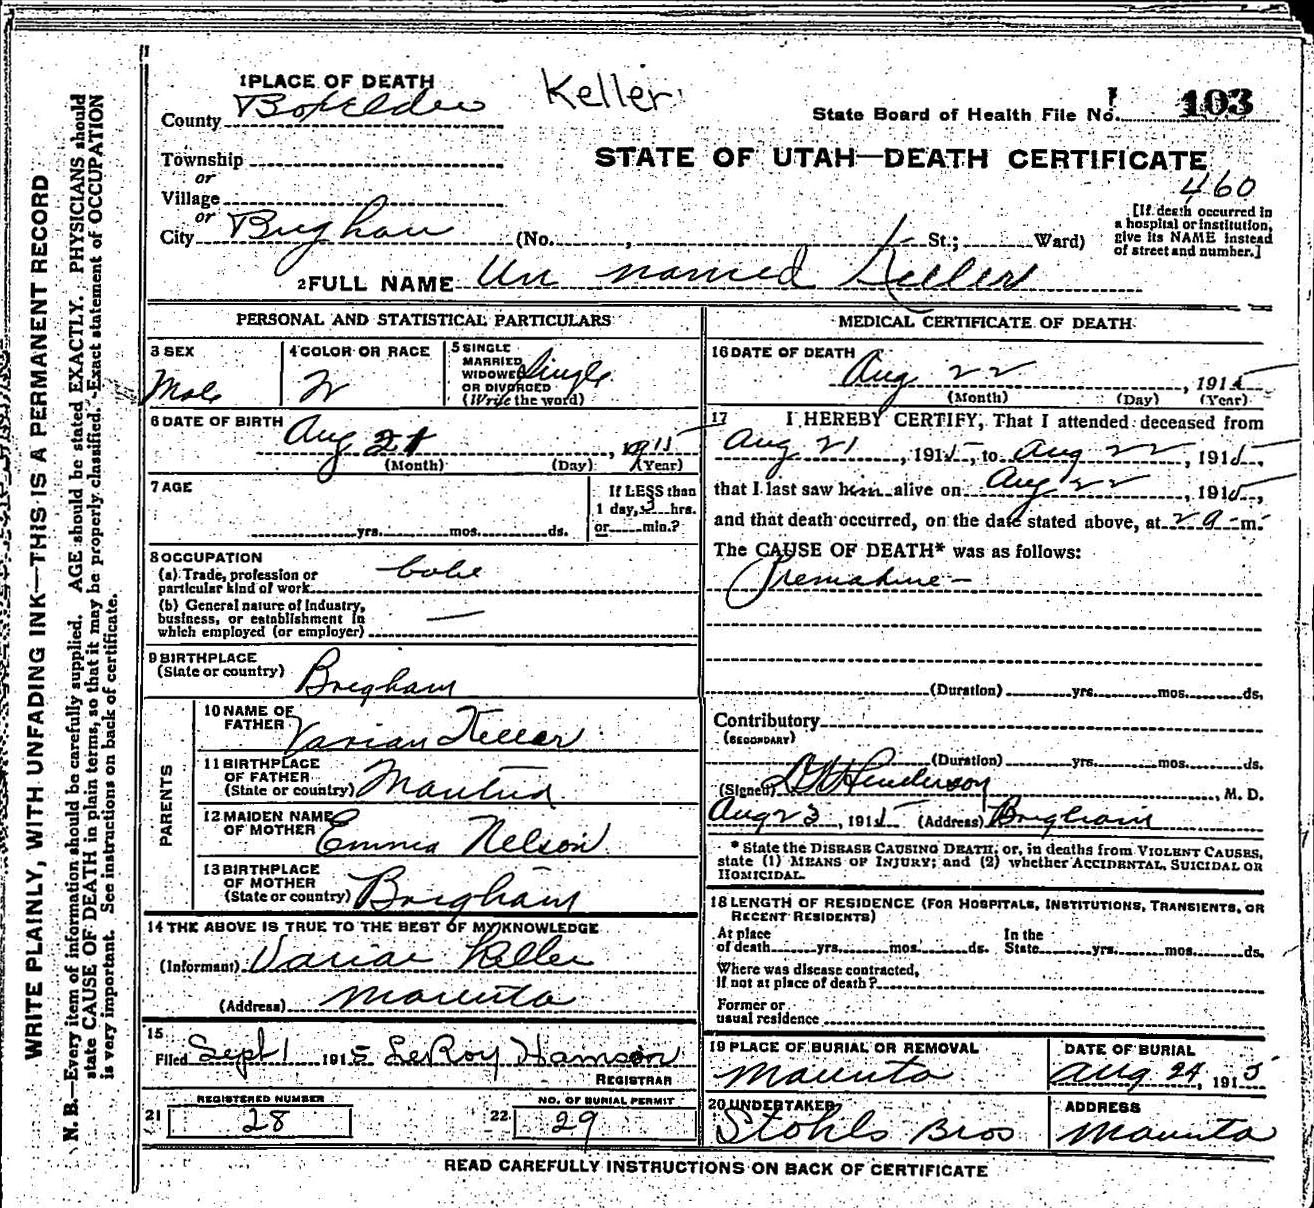 WRITE PLAINLY, WITH UNFADING INK—THIS IS A PERMANENT RECORD
N. B.—Every item of information should be carefully supplied. AGE should be stated EXACTLY. PHYSICIANS should
state CAUSE OF DEATH in plain terms, so that it may be properly classified. Exact statement of OCCUPATION
is very important. See instructions on back of certificate.
1 PLACE OF DEATH
Keller
County Boxelder
State Board of Health File No. 103
Township
STATE OF UTAH—DEATH CERTIFICATE
or
460
Village
or
City Brigham (No. , St.; Ward)
[If death occurred in
a hospital or institution,
give its NAME instead
of street and number.]
2 FULL NAME Un named Keller
PERSONAL AND STATISTICAL PARTICULARS
3 SEX
Male
4 COLOR OR RACE
W
5 SINGLE
MARRIED
WIDOWED
OR DIVORCED
(Write the word)
Single
6 DATE OF BIRTH
Aug 21, 1915
(Month) (Day) (Year)
7 AGE
yrs. mos. ds.
If LESS than
1 day, 3 hrs.
or min.?
8 OCCUPATION
(a) Trade, profession or
particular kind of work babe
(b) General nature of Industry,
business, or establishment in
which employed (or employer) —
9 BIRTHPLACE
(State or country) Brigham
PARENTS
10 NAME OF
FATHER Varian Keller
11 BIRTHPLACE
OF FATHER
(State or country)
12 MAIDEN NAME
OF MOTHER Emma Nelson
13 BIRTHPLACE
OF MOTHER
(State or country) Brigham
14 THE ABOVE IS TRUE TO THE BEST OF MY KNOWLEDGE
(Informant) Varian Keller
(Address) Mantua
15
Filed Sept 1 1915 LeRoy Hamson
REGISTRAR
21 REGISTERED NUMBER
28
22 NO. OF BURIAL PERMIT
29
MEDICAL CERTIFICATE OF DEATH
16 DATE OF DEATH
Aug 22, 1915
(Month) (Day) (Year)
17 I HEREBY CERTIFY, That I attended deceased from
Aug 21, 1915, to Aug 22, 1915,
that I last saw him alive on Aug 22, 1915,
and that death occurred, on the date stated above, at 2 a m.
The CAUSE OF DEATH* was as follows:
Premature —
(Duration) yrs. mos. ds.
Contributory
(SECONDARY)
(Duration) yrs. mos. ds.
(Signed) Henderson, M. D.
Aug 23, 1915 (Address) Brigham
* State the DISEASE CAUSING DEATH; or, in deaths from VIOLENT CAUSES,
state (1) MEANS OF INJURY; and (2) whether ACCIDENTAL, SUICIDAL OR
HOMICIDAL.
18 LENGTH OF RESIDENCE (FOR HOSPITALS, INSTITUTIONS, TRANSIENTS, OR
RECENT RESIDENTS)
At place
of death yrs. mos. ds.
In the
State yrs. mos. ds.
Where was disease contracted,
if not at place of death?
Former or
usual residence
19 PLACE OF BURIAL OR REMOVAL
Mantua
DATE OF BURIAL
Aug 24, 1915
20 UNDERTAKER
Stohls Bros
ADDRESS
Mantua
READ CAREFULLY INSTRUCTIONS ON BACK OF CERTIFICATE